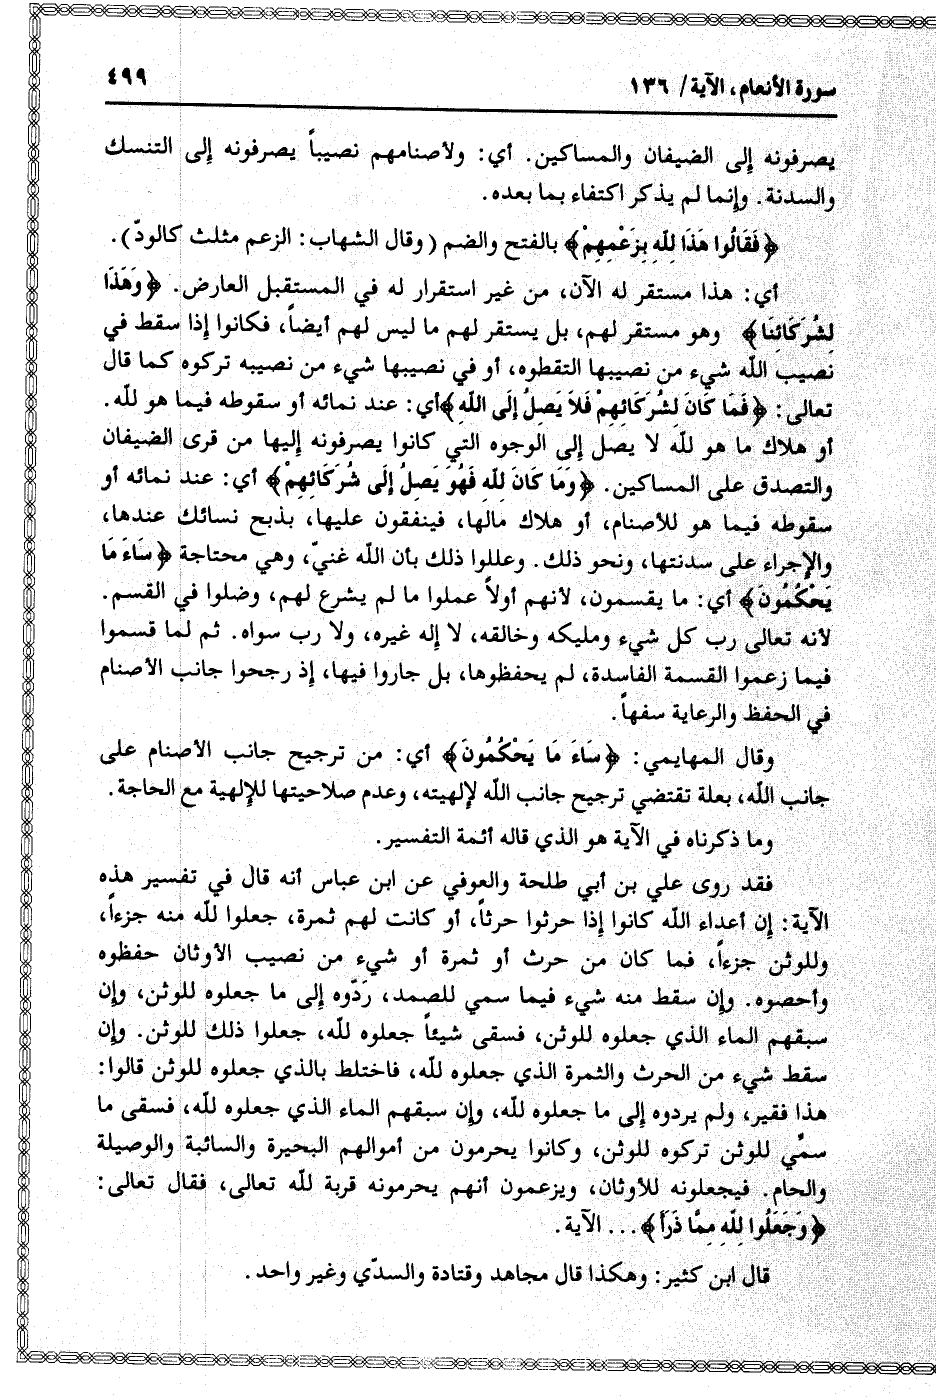 سورة الأنعام، الآية/ ١٣٦
٤٩٩
يصرفونه إلى الضيفان والمساكين. أي: ولأصنامهم نصيباً يصرفونه إلى التنسك
والسدنة. وإنما لم يذكر اكتفاء بما بعده.
﴿فَقَالُوا هَذَا للهِ بِزَعْمِهِمْ﴾ بالفتح والضم (وقال الشهاب: الزعم مثلث كالودّ).
أي: هذا مستقر له الآن، من غير استقرار له في المستقبل العارض. ﴿وَهَذَا
لِشُرَكَائِنَا﴾ وهو مستقر لهم، بل يستقر لهم ما ليس لهم أيضاً، فكانوا إذا سقط في
نصيب الله شيء من نصيبها التقطوه، أو في نصيبها شيء من نصيبه تركوه كما قال
تعالى: ﴿فَمَا كَانَ لشُرَكَائِهِمْ فَلاَ يَصِلُ إلَى اللهِ﴾أي: عند نمائه أو سقوطه فيما هو لله.
أو هلاك ما هو لله لا يصل إلى الوجوه التي كانوا يصرفونه إليها من قرى الضيفان
والتصدق على المساكين. ﴿وَمَا كَانَ للهِ فَهُوَ يَصِلُ إلَى شُرَكَائِهِمْ﴾ أي: عند نمائه أو
سقوطه فيما هو للأصنام، أو هلاك مالها، فينفقون عليها، بذبح نسائك عندها،
والإجراء على سدنتها، ونحو ذلك. وعللوا ذلك بأن الله غنيّ، وهي محتاجة ﴿سَاءَ مَا
يَحْكُمُونَ﴾ أي: ما يقسمون، لأنهم أولاً عملوا ما لم يشرع لهم، وضلوا في القسم.
لأنه تعالى رب كل شيء ومليكه وخالقه، لا إله غيره، ولا رب سواه. ثم لما قسموا
فيما زعموا القسمة الفاسدة، لم يحفظوها، بل جاروا فيها، إذ رجحوا جانب الأصنام
في الحفظ والرعاية سفهاً.
وقال المهايمي: ﴿سَاءَ مَا يَحْكُمُونَ﴾ أي: من ترجيح جانب الأصنام على
جانب الله، بعلة تقتضي ترجيح جانب الله لإلهيته، وعدم صلاحيتها للإلهية مع الحاجة.
وما ذكرناه في الآية هو الذي قاله أئمة التفسير.
فقد روى علي بن أبي طلحة والعوفي عن ابن عباس أنه قال في تفسير هذه
الآية: إن أعداء الله كانوا إذا حرثوا حرثاً، أو كانت لهم ثمرة، جعلوا لله منه جزءاً،
وللوثن جزءاً، فما كان من حرث أو ثمرة أو شيء من نصيب الأوثان حفظوه
وأحصوه. وإن سقط منه شيء فيما سمي للصمد، رَدّوه إلى ما جعلوه للوثن، وإن
سبقهم الماء الذي جعلوه للوثن، فسقى شيئاً جعلوه لله، جعلوا ذلك للوثن. وإن
سقط شيء من الحرث والثمرة الذي جعلوه لله، فاختلط بالذي جعلوه للوثن قالوا:
هذا فقير، ولم يردوه إلى ما جعلوه لله، وإن سبقهم الماء الذي جعلوه لله، فسقى ما
سمِّي للوثن تركوه للوثن، وكانوا يحرمون من أموالهم البحيرة والسائبة والوصيلة
والحام. فيجعلونه للأوثان، ويزعمون أنهم يحرمونه قربة لله تعالى، فقال تعالى:
﴿وَجَعَلُوا لِلّهِ مِمَّا ذَرَأَ﴾... الآية.
قال ابن كثير: وهكذا قال مجاهد وقتادة والسدّي وغير واحد.